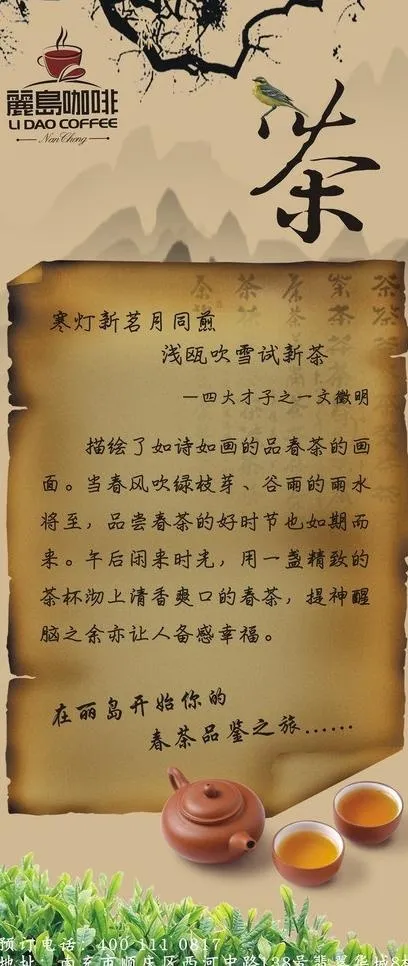 麗島咖啡
LI DAO COFFEE
NanChong
茶
寒灯新茗月同煎
浅瓯吹雪试新茶
—四大才子之一文徵明
描绘了如诗如画的品春茶的画
面。当春风吹绿枝芽、谷雨的雨水
将至，品尝春茶的好时节也如期而
来。午后闲来时光，用一盏精致的
茶杯沏上清香爽口的春茶，提神醒
脑之余亦让人备感幸福。
在丽岛开始你的
春茶品鉴之旅......
预订电话：400 111 0817
地址：南充市顺庆区西河中路138号翡翠华城8栋